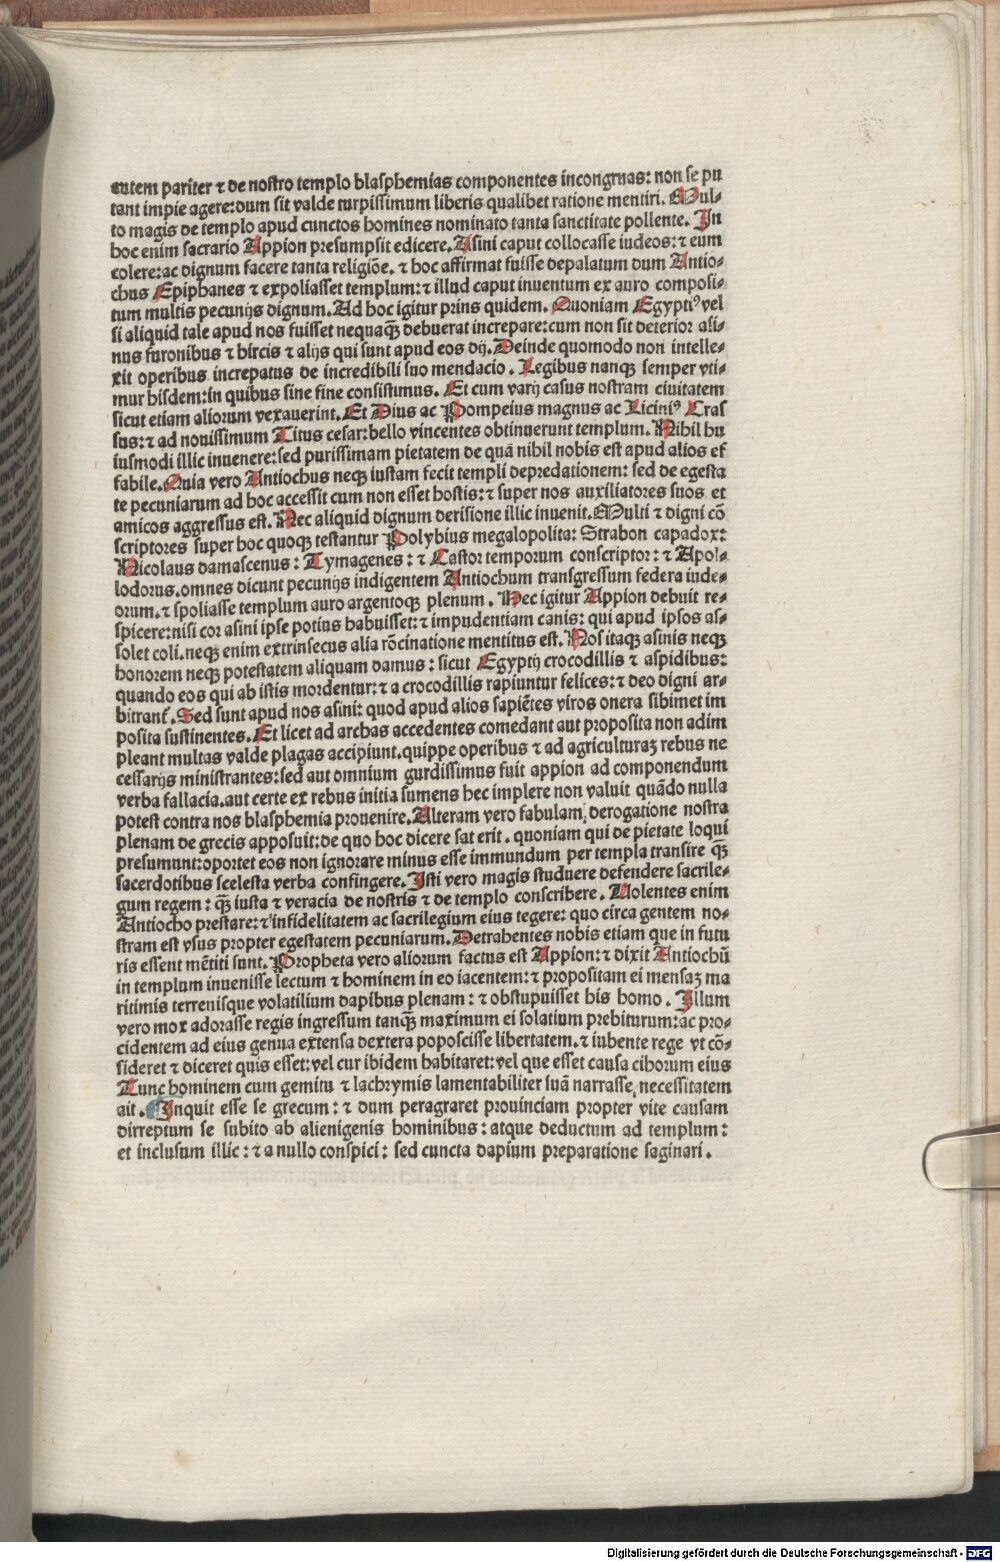 autem pariter ⁊ de nostro templo blasphemias componentes incongruas: non se pu
tant impie agere: dum sit valde turpissimum liberis qualibet ratione mentiri. Mul-
to magis de templo apud cunctos homines nominato tanta sanctitate pollente. In
hoc enim sacrario Appion presumpsit edicere. Asini caput collocasse iudeos: ⁊ eum
colere: ac dignum facere tanta religiõe. ⁊ hoc affirmat fuisse depalatum dum Antio-
chus Epiphanes ⁊ expoliasset templum: ⁊ illud caput inuentum ex auro composi-
tum multis pecunijs dignum. Ad hoc igitur prius quidem. Quoniam Egyptiꝰ vel
si aliquid tale apud nos fuisset nequaq̃ debuerat increpare: cum non sit deterior asi-
nus furonibus ⁊ hircis ⁊ alijs qui sunt apud eos dij. Deinde quomodo non intelle-
xit operibus increpatus de incredibili suo mendacio. Legibus nanqꝫ semper vti-
mur hisdem: in quibus sine fine consistimus. Et cum varij casus nostram ciuitatem
sicut etiam aliorum vexauerint. Et Dius ac Pompeius magnus ac Liciniꝰ Cras
sus: ⁊ ad nouissimum Titus cesar: bello vincentes obtinuerunt templum. Nihil hu
iusmodi illic inuenere: sed purissimam pietatem de quã nihil nobis est apud alios ef
fabile. Quia vero Antiochus neqꝫ iustam fecit templi depredationem: sed de egesta
te pecuniarum ad hoc accessit cum non esset hostis: ⁊ super nos auxiliatores suos et
amicos aggressus est. Nec aliquid dignum derisione illic inuenit. Multi ⁊ digni cõ
scriptores super hoc quoqꝫ testantur Polybius megalopolita: Strabon capadox:
Nicolaus damascenus: Tymagenes: ⁊ Castor temporum conscriptor: ⁊ Apol-
lodorus. omnes dicunt pecunijs indigentem Antiochum transgressum federa iude-
orum. ⁊ spoliasse templum auro argentoqꝫ plenum. Hec igitur Appion debuit re-
spicere: nisi cor asini ipse potius habuisset: ⁊ impudentiam canis: qui apud ipsos as-
solet coli. neqꝫ enim extrinsecus alia rõcinatione mentitus est. Nos itaqꝫ asinis neqꝫ
honorem neqꝫ potestatem aliquam damus: sicut Egyptij crocodillis ⁊ aspidibus:
quando eos qui ab istis mordentur: ⁊ a crocodillis rapiuntur felices: ⁊ deo digni ar-
bitranť. Sed sunt apud nos asini: quod apud alios sapiẽtes viros onera sibimet im
posita sustinentes. Et licet ad archas accedentes comedant aut proposita non adim
pleant multas valde plagas accipiunt. quippe operibus ⁊ ad agriculturaꝫ rebus ne
cessarijs ministrantes: sed aut omnium gurdissimus fuit appion ad componendum
verba fallacia. aut certe ex rebus initia sumens hec implere non valuit quãdo nulla
potest contra nos blasphemia prouenire. Alteram vero fabulam derogatione nostra
plenam de grecis apposuit: de quo hoc dicere sat erit. quoniam qui de pietate loqui
presumunt: oportet eos non ignorare minus esse immundum per templa transire q̃
sacerdotibus scelesta verba confingere. Isti vero magis studuere defendere sacrile-
gum regem: q̃ iusta ⁊ veracia de nostris ⁊ de templo conscribere. Volentes enim
Antiocho prestare: ⁊ infidelitatem ac sacrilegium eius tegere: quo circa gentem no-
stram est vsus propter egestatem pecuniarum. Detrahentes nobis etiam que in futu
ris essent mẽtiti sunt. Propheta vero aliorum factus est Appion: ⁊ dixit Antiochũ
in templum inuenisse lectum ⁊ hominem in eo iacentem: ⁊ propositam ei mensaꝫ ma
ritimis terrenisque volatilium dapibus plenam: ⁊ obstupuisset his homo. Illum
vero mox adorasse regis ingressum tanq̃ maximum ei solatium prebiturum: ac pro-
cidentem ad eius genua extensa dextera poposcisse libertatem. ⁊ iubente rege vt cõ-
sideret ⁊ diceret quis esset: vel cur ibidem habitaret: vel que esset causa ciborum eius
Tunc hominem cum gemitu ⁊ lachrymis lamentabiliter suã narrasse necessitatem
ait. Inquit esse se grecum: ⁊ dum peragraret prouinciam propter vite causam
dirreptum se subito ab alienigenis hominibus: atque deductum ad templum:
et inclusum illic: ⁊ a nullo conspici: sed cuncta dapium preparatione saginari.
Digitalisierung gefördert durch die Deutsche Forschungsgemeinschaft - DFG